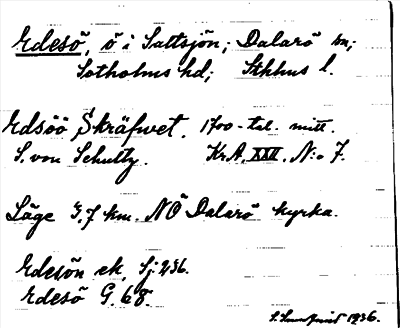 Edesö, ö i Saltsjön; Dalarö sn;
Sotholms hd; Sthlms l.
Edsöö Skräfwet. 1700-tal. mitt.
S. von Schultz. Kr.A. XXI. N:o 7.
Läge 3,7 km. NÖ Dalarö kyrka.
Edesön ek. Sj. 236.
Edesö G. 68.
1936.